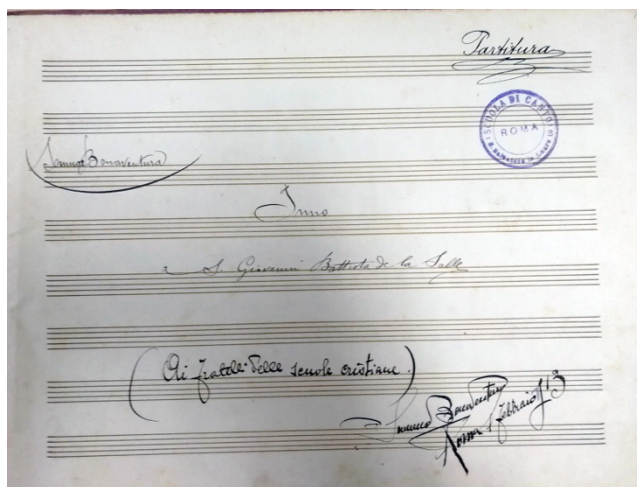 Partitura
SCUOLA DI CANTO
ROMA
S. Salvatore in Lauro
Somma Bonaventura
Inno
a S. Giovanni Battista de la Salle
(Ai fratelli delle scuole cristiane)
Somma Bonaventura
Roma 1 febbraio 913